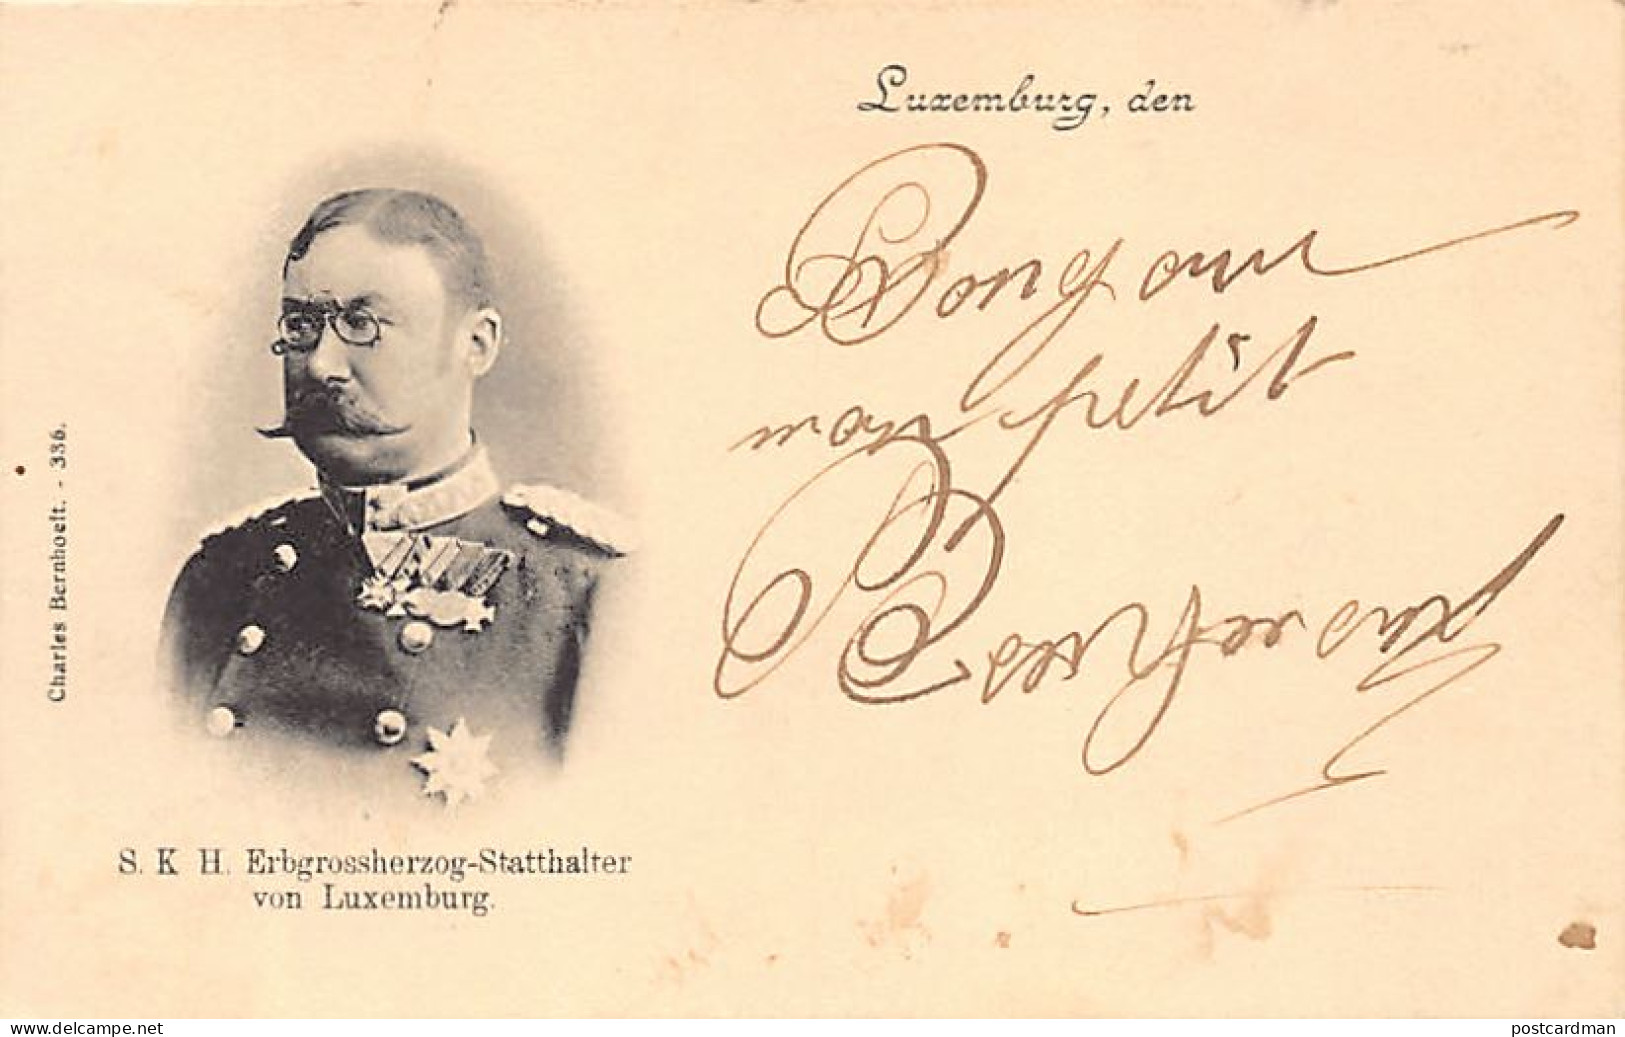 Luxemburg, den
Bongour
mon petit
Charles Bernhoeft. - 336.
S. K H. Erbgrossherzog-Statthalter
von Luxemburg.
delcampe.net
postcardman